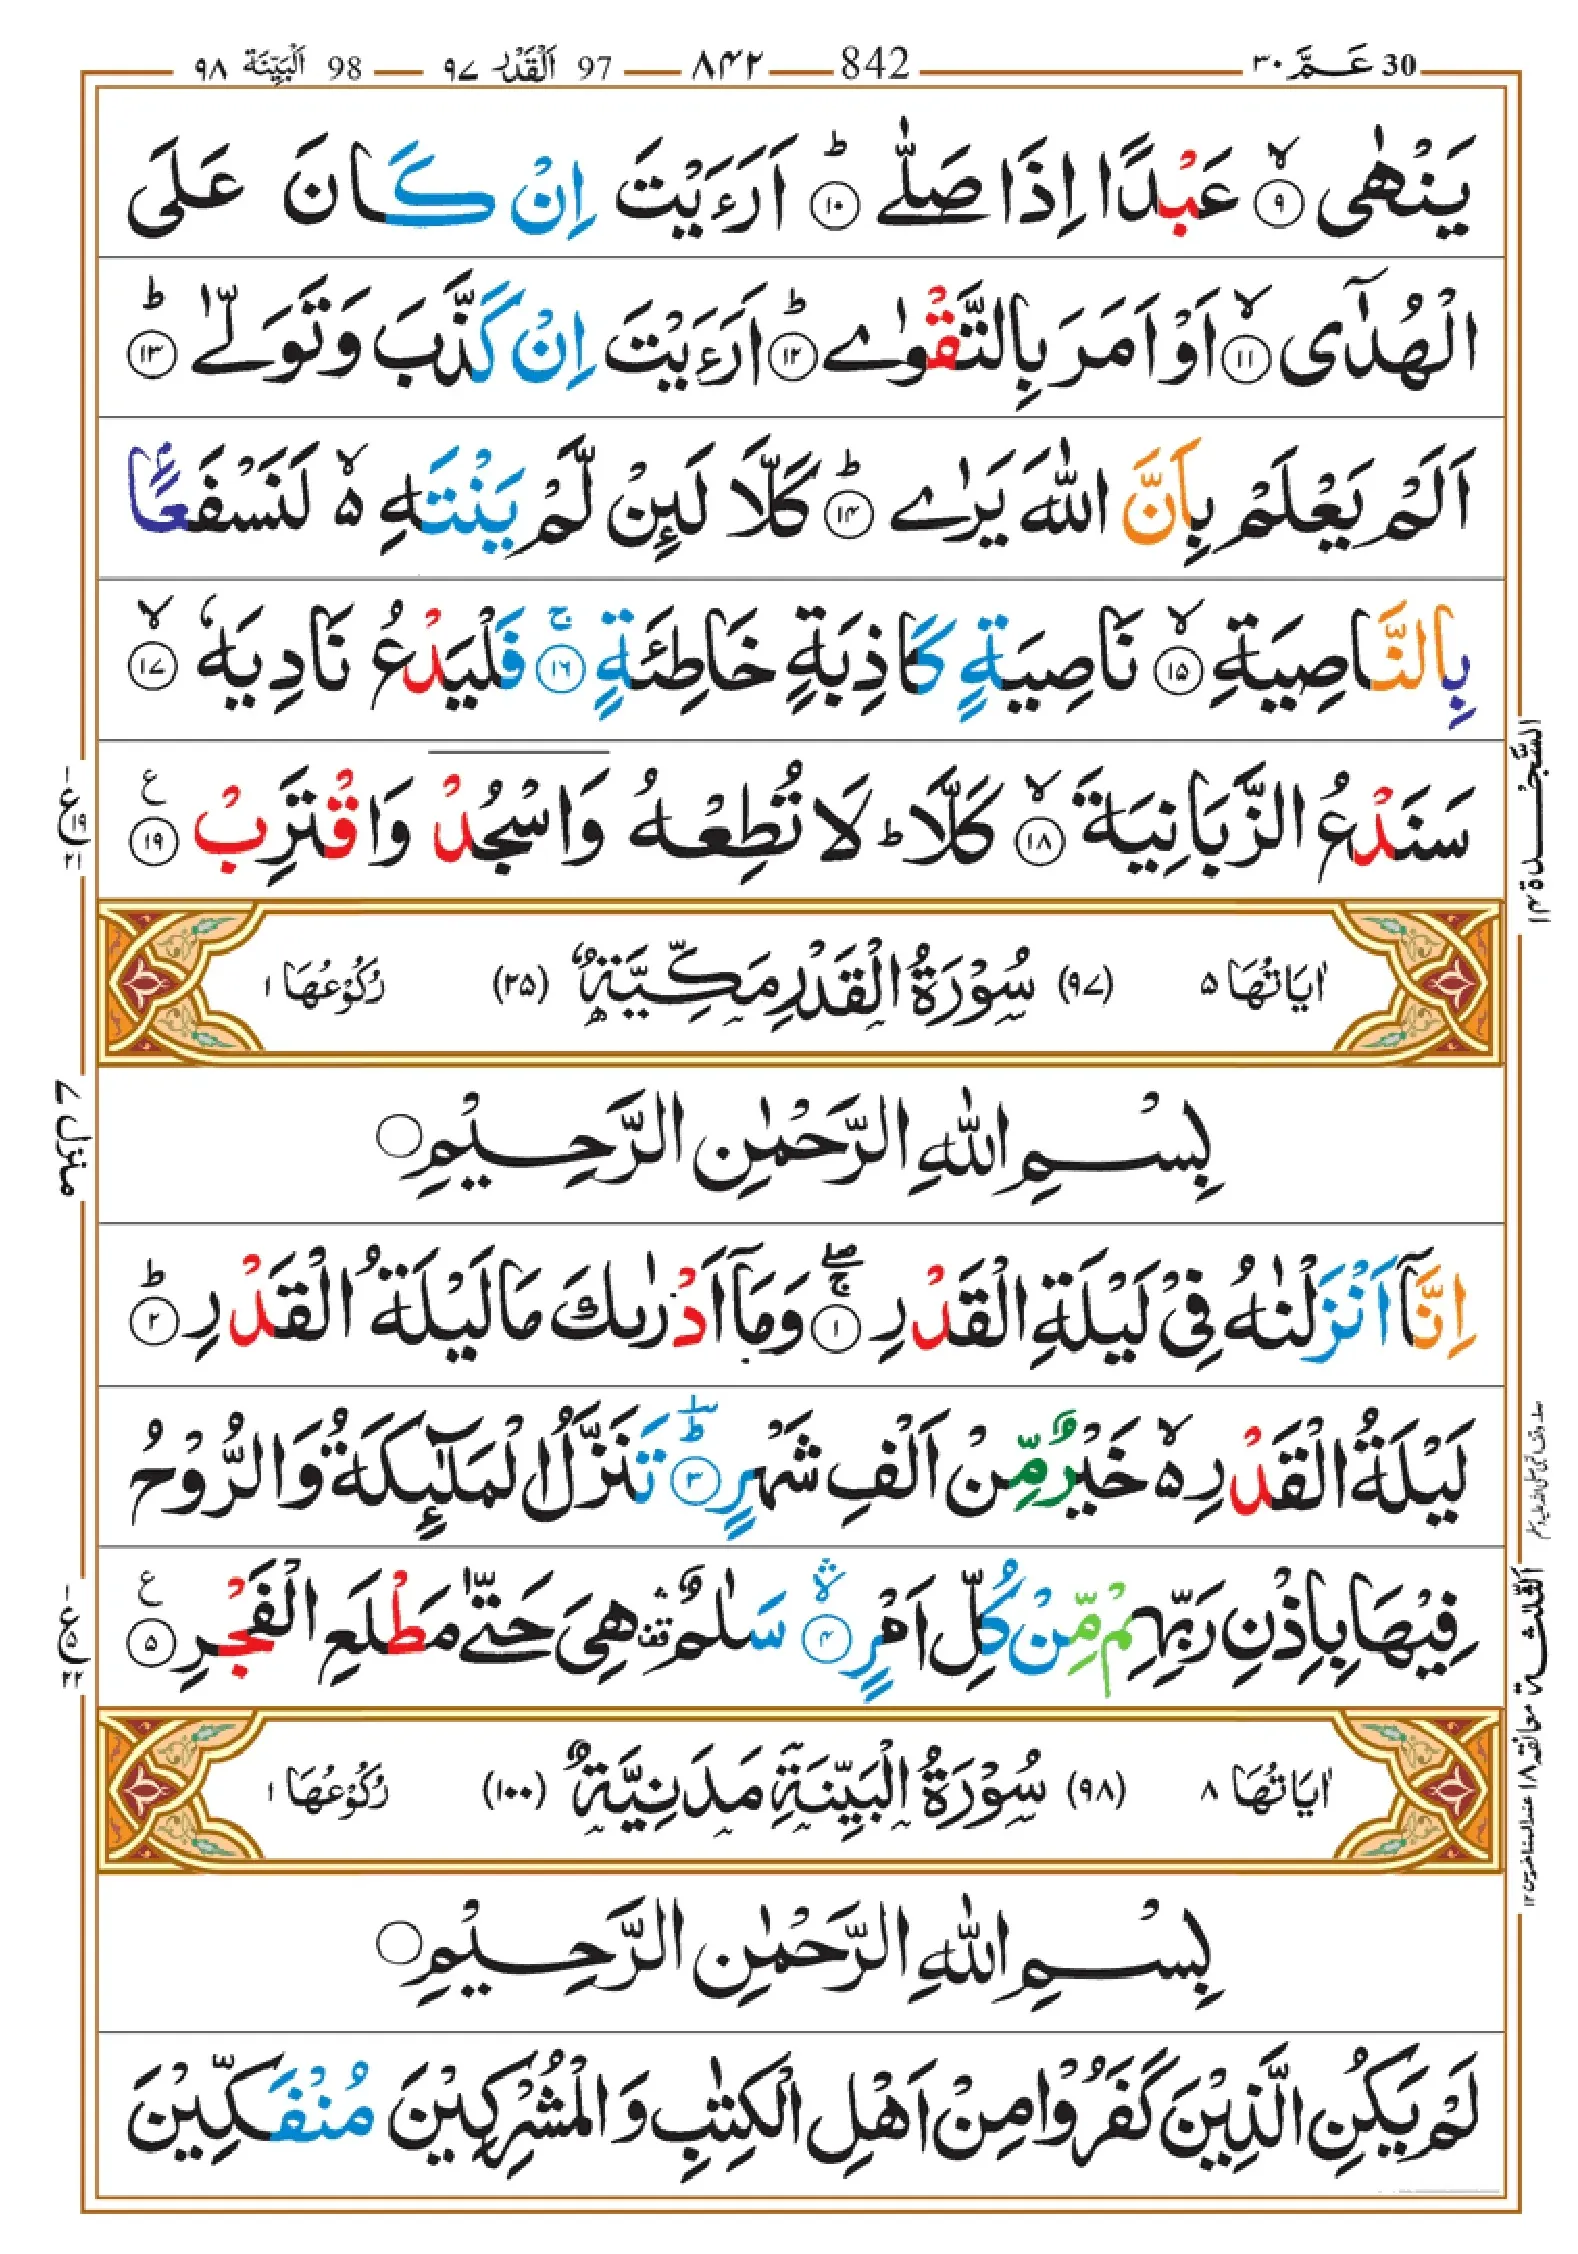 30 عَـمَّ ٣٠ 842 ٨٤٢ 97 اَلْقَدْر ٩٧ 98 اَلْبَيِّنَة ٩٨
يَنْهٰى ۙ ٩ عَبْدًا اِذَا صَلّٰے ؕ ١٠ اَرَءَيْتَ اِنْ كَانَ عَلَى
الْهُدٰٓى ۙ ١١ اَوْ اَمَرَ بِالتَّقْوٰے ؕ ١٢ اَرَءَيْتَ اِنْ كَذَّبَ وَتَوَلّٰے ؕ ١٣
اَلَمْ يَعْلَمْ بِاَنَّ اللّٰهَ يَرٰے ؕ ١٤ كَلَّا لَىِٕنْ لَّمْ يَنْتَهِ ۙ۬ ٥ لَنَسْفَعًۢا
بِالنَّاصِيَةِ ۙ ١٥ نَاصِيَةٍ كَاذِبَةٍ خَاطِئَةٍ ۚ ١٦ فَلْيَدْعُ نَادِيَهٗ ۙ ١٧
سَنَدْعُ الزَّبَانِيَةَ ۙ ١٨ كَلَّا ؕ لَا تُطِعْهُ وَاسْجُدْ وَاقْتَرِبْ ع ١٩
اٰيَاتُهَا ٥ (٩٧) سُوْرَةُ الْقَدْرِ مَكِّيَّةٌ (٢٥) رُكُوْعُهَا ١
بِسْمِ اللّٰهِ الرَّحْمٰنِ الرَّحِيْمِ
اِنَّآ اَنْزَلْنٰهُ فِيْ لَيْلَةِ الْقَدْرِ ۖۚ ١ وَمَآ اَدْرٰىكَ مَا لَيْلَةُ الْقَدْرِ ؕ ٢
لَيْلَةُ الْقَدْرِ ۙ٥ خَيْرٌ مِّنْ اَلْفِ شَهْرٍ ؕ ٣ تَنَزَّلُ الْمَلٰٓىِٕكَةُ وَالرُّوْحُ
فِيْهَا بِاِذْنِ رَبِّهِمْ مِّنْ كُلِّ اَمْرٍ ۛۙ ٤ سَلٰمٌ ۛ قف هِيَ حَتّٰے مَطْلَعِ الْفَجْرِ ع ٥
اٰيَاتُهَا ٨ (٩٨) سُوْرَةُ الْبَيِّنَةِ مَدَنِيَّةٌ (١٠٠) رُكُوْعُهَا ١
بِسْمِ اللّٰهِ الرَّحْمٰنِ الرَّحِيْمِ
لَمْ يَكُنِ الَّذِيْنَ كَفَرُوْا مِنْ اَهْلِ الْكِتٰبِ وَالْمُشْرِكِيْنَ مُنْفَكِّيْنَ
اَلسَّجْدَة ١٤
اَلثَّلٰثَة
معانقه ١٨ عند المتاخرين ١٢
ع ١٩ ٢١
منزل ٧
ع ٥ ٢٢